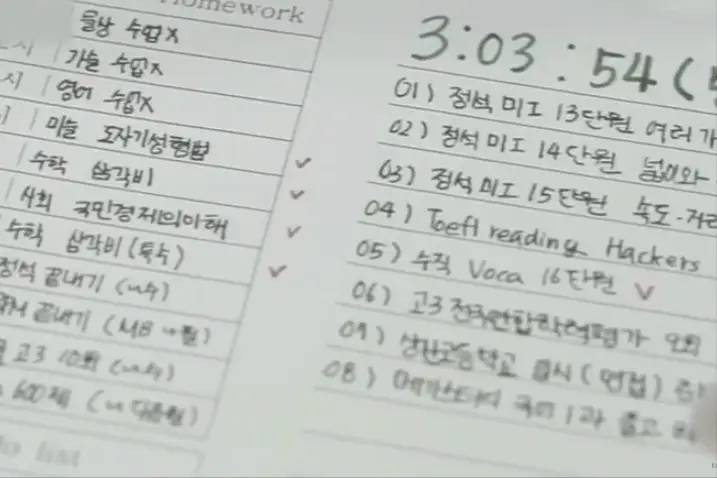 Homework
물상 수업X
시 기술 수업X
시 영어 수업X
미술 도자기성형법
수학 삼각비
사회 국민경제의이해
수학 삼각비(특수)
정석 끝내기 (~수)
끝내기 (MB
고3 10회 (~수)
600제
list
3:03:54(
01) 정석 미I 13단원 여러가
02) 정석 미I 14단원 넓이와
03) 정석 미I 15단원 속도·거리
04) Toefl reading Hackers
05) 수직 Voca 16단원
06) 고3 전국연합학력평가 9회
07) 상산고등학교 입시(면접)
08) 메가스터디 국어 1과 풀고